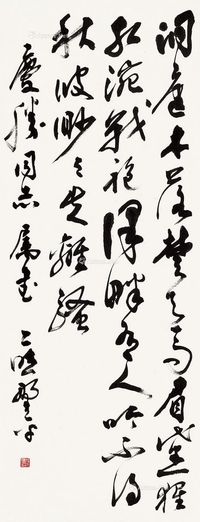 洞庭木落楚天高眉黛猩
红涴战袍泽畔有人吟不得
秋波渺々失离骚
庆胜同志属书
二晓学书